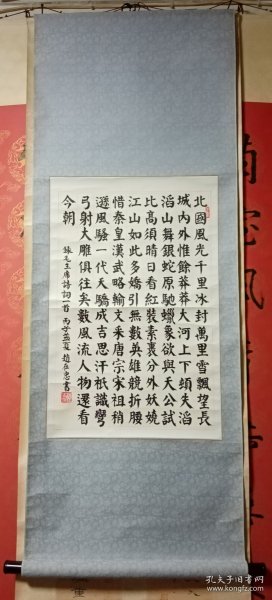 北國風光千里冰封萬里雪飄望長
城内外惟餘莽莽大河上下頓失滔
滔山舞銀蛇原馳蠟象欲與天公試
比高須晴日看紅裝素裹分外妖嬈
江山如此多嬌引無數英雄競折腰
惜秦皇漢武略輸文采唐宗宋祖稍
遜風騷一代天驕成吉思汗祇識彎
弓射大雕俱往矣數風流人物還看
今朝 錄毛主席詩詞一首 丙子孟夏 趙 忠書
孔夫子旧书网